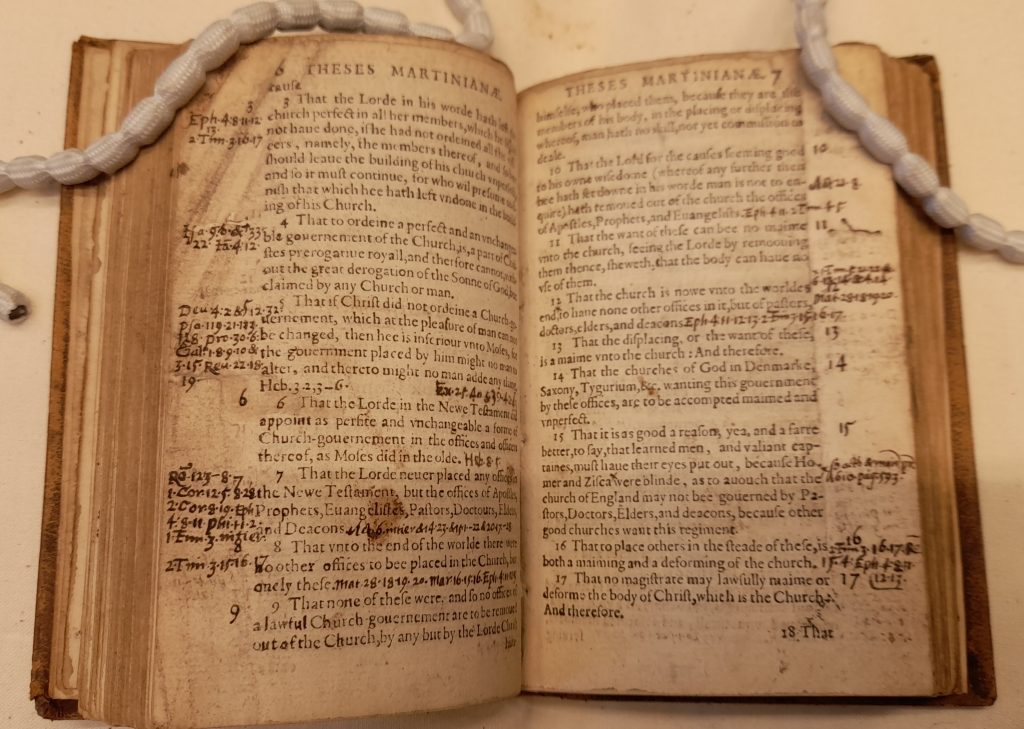 6 THESES MARTINIANÆ.
cause
3 That the Lorde in his worde hath left the
church perfect in all her members, which he
not haue done, if he had not ordeined all the
cers, namely, the members thereof, and so
should leaue the building of his church vnperfect
and so it must continue, for who wil presume to
nish that which hee hath left vndone in the build
ing of his Church.
4 That to ordeine a perfect and an vnchangea
ble gouernement of the Church, is, a part of Chri
stes prerogatiue royall, and therfore cannot, with
out the great derogation of the Sonne of God, be
claimed by any Church or man.
5 That if Christ did not ordeine a Church-go
uernement, which at the pleasure of man can not
be changed, then hee is inferiour vnto Moses, for
the gouernment placed by him might no man to
alter, and thereto might no man adde any thing.
Heb. 3.2,3-6.
6 That the Lorde in the Newe Testament did
appoint as perfite and vnchangeable a forme of
Church-gouernement in the offices and officers
thereof, as Moses did in the olde. Heb.8.5.
7 That the Lorde neuer placed any offices in
the Newe Testament, but the offices of Apostles,
Prophets, Euangelistes, Pastors, Doctours, Elders,
and Deacons.
8 That vnto the end of the worlde there were
no other offices to bee placed in the Church, but
onely these. Mat 28.18.19.20. Mar.16.15.16. Eph 4.11.
9 That none of these were, and so no offices of
a lawful Church-gouernement are to be remoued
out of the Church, by any but by the Lorde Christ
him
3
Eph.4.8.11.12
13.
2.Tim.3.16.17
Deu.4.2.&.12.32
Psa.119.21.
118. Pro.30.6
Gal.1.8.9.10&
3.15. Reu.22.18
19.
6
7
1.Cor.12.5.8.28
2.Cor.8.19. Eph
4.8.11. Phi.1.1.
8
2.Tim.3.15.16.17
9
THESES MARTINIANÆ. 7
himselfe, who placed them, because they are the
members of his body, in the placing or displacing
whereof, man hath no skill, nor yet commission to
deale.
10 That the Lord for the causes seeming good
to his owne wisedome (whereof any further then
hee hath set downe in his worde man is not to en-
quire) hath remoued out of the church the offices
of Apostles, Prophets, and Euangelists. Eph 4.11. 2 Tim 4.5
11 That the want of these can bee no maime
vnto the church, seeing the Lorde by remoouing
them thence, sheweth, that the body can haue no
vse of them.
12 That the church is nowe vnto the worldes
end, to haue none other offices in it, but of pastors,
doctors, elders, and deacons. Eph 4.11.12.13. 2 Tim 3.15.16.17.
13 That the displacing, or the want of these,
is a maime vnto the church: And therefore.
14 That the churches of God in Denmarke,
Saxony, Tygurium, &c. wanting this gouernment
by these offices, are to be accompted maimed and
vnperfect.
15 That it is as good a reason, yea, and a farre
better, to say, that learned men, and valiant cap-
taines, must haue their eyes put out, because Ho-
mer and Zisca were blinde, as to auouch that the
church of England may not bee gouerned by Pa-
stors, Doctors, Elders, and deacons, because other
good churches want this regiment.
16 That to place others in the steade of these, is
both a maiming and a deforming of the church.
17 That no magistrate may lawfully maime or
deforme the body of Christ, which is the Church:
And therefore.
18 That
10
11
12
Mat 28.18.19.20.
13
14
15
16
2 Tim 3.16.17. Re
15.4. Eph 4.8.11
17 12.13.